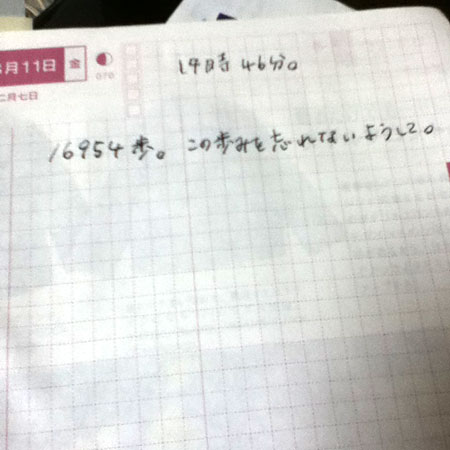 月11日 金
070
二月七日
14時46分。
16954歩。この歩みを忘れないように。